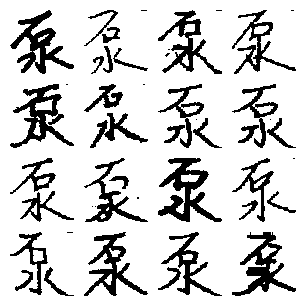 泵泵泵泵
泵泵泵泵
泵泵泵泵
泵泵泵泵